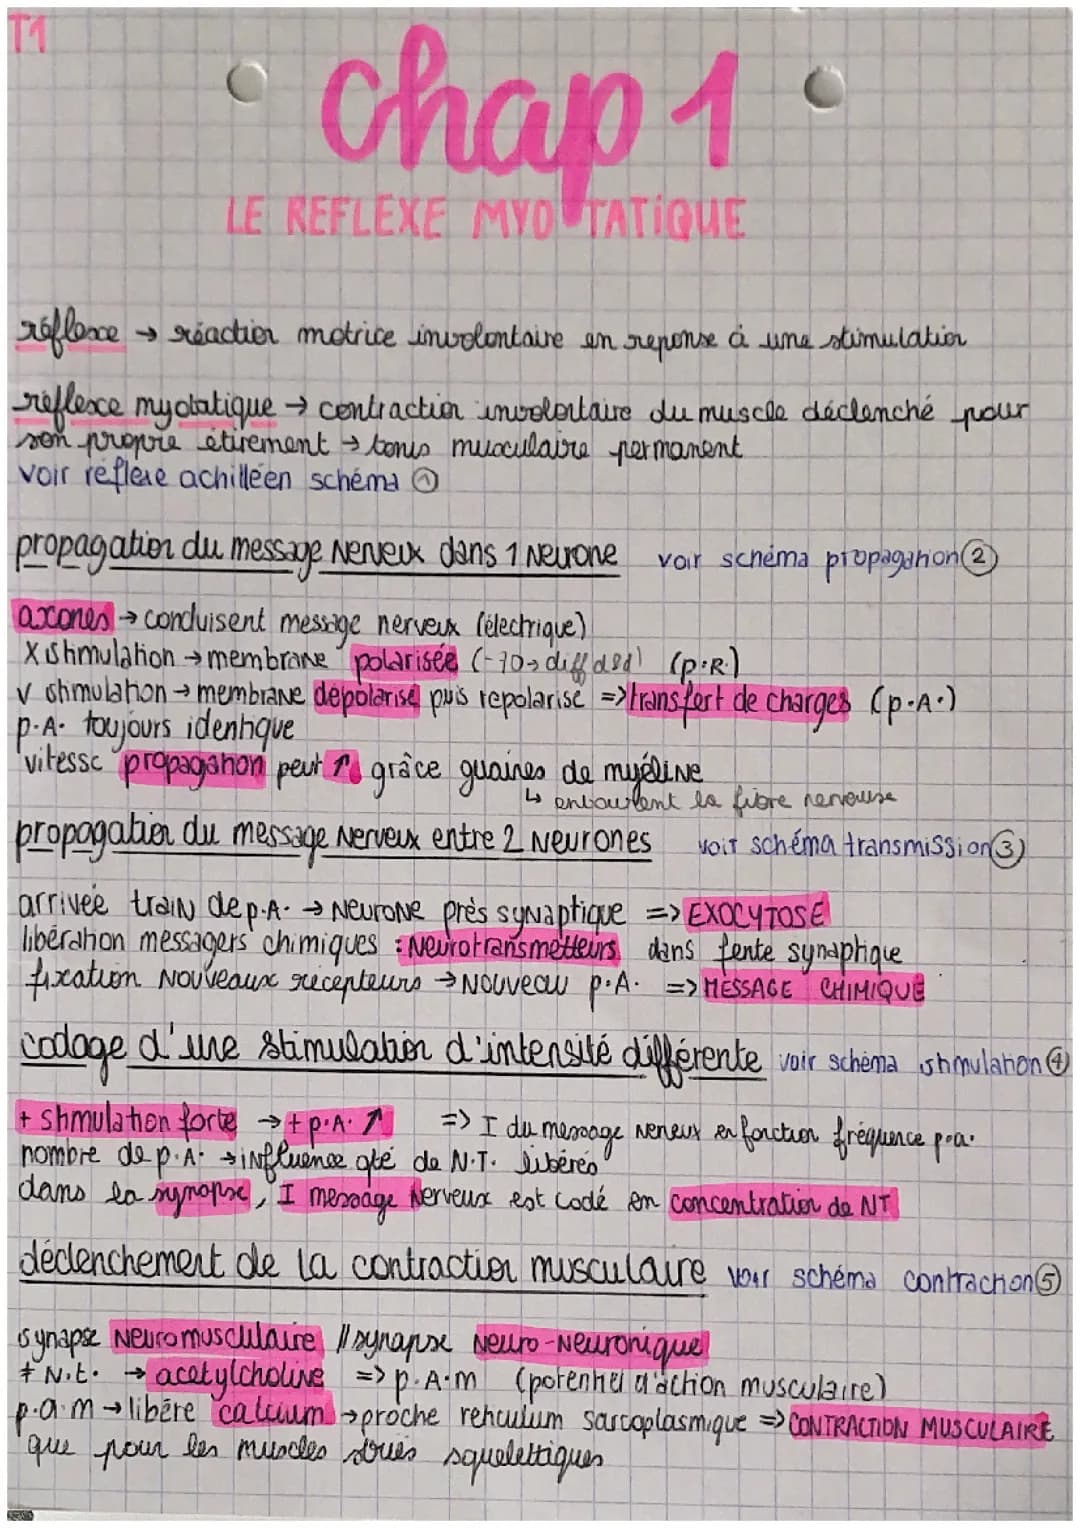 T1
Chap 1
LE REFLEXE MYOTATIQUE
réflexe → réaction motrice involontaire en reponse à une stimulation
réflexe myotatique → contraction involontaire du muscle déclenché pour
son propre étirement → tonus musculaire permanent
voir réflexe achilléen schéma ①
propagation du message nerveux dans 1 neurone voir schéma propagation ②
axones → conduisent message nerveux (électrique)
X stimulation → membrane polarisée (-70 → diff ddd) (p.R.)
v stimulation → membrane dépolarise puis repolarise => transfert de charges (p.A.)
p.A. toujours identique
vitesse propagation peut ↑ grâce guaines de myéline
↳ entourent la fibre nerveuse
propagation du message nerveux entre 2 neurones voir schéma transmission ③
arrivée train de p.A. → neurone près synaptique => EXOCYTOSE
libération messagers chimiques : neurotransmetteurs dans fente synaptique
fixation nouveaux récepteurs → nouveau p.A. => MESSAGE CHIMIQUE
codage d'une stimulation d'intensité différente voir schéma stimulation ④
+ stimulation forte → + p.A. ↑ => I du message nerveux en fonction fréquence p.a.
nombre de p.A. → influence qté de N.T. libérés
dans la synapse, I message nerveux est codé en concentration de NT
déclenchement de la contraction musculaire voir schéma contraction ⑤
synapse neuromusculaire // synapse neuro-neuronique
≠ N.t. → acetylcholine => p.A.m (potentiel d'action musculaire)
p.a.m → libère calcium → proche reticulum sarcoplasmique => CONTRACTION MUSCULAIRE
que pour les muscles striés squelettiques